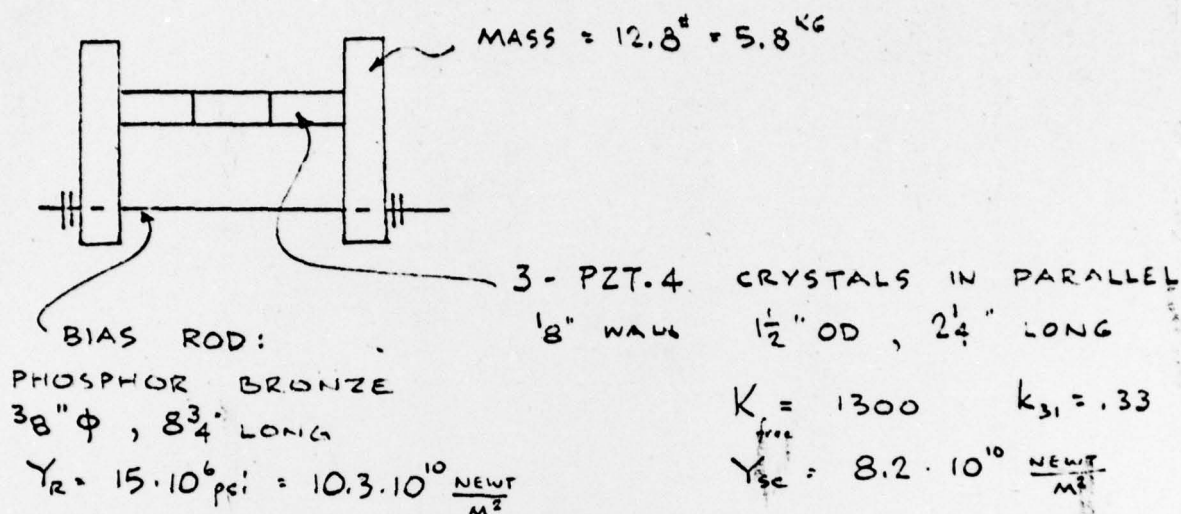 MASS = 12.8# = 5.8KG
3 - PZT-4 CRYSTALS IN PARALLEL
1/8" WALL 1 1/2" OD , 2 1/4" LONG
K free = 1300 k31 = .33
YSC = 8.2 · 10^10 NEWT/M^2
BIAS ROD:
PHOSPHOR BRONZE
3/8" φ , 8 3/4" LONG
YR = 15·10^6 psi = 10.3·10^10 NEWT/M^2